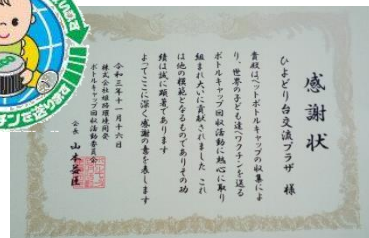 感謝状
ひよどり台交流プラザ 様
貴殿はペットボトルキャップの収集によ
り、世界の子ども達へワクチンを送る
ボトルキャップ回収活動に熱心に取り
組まれ大いに貢献されました これ
は他の模範となるものでありその功
績は誠に顕著であります
よってここに深く感謝の意を表します
令和三年十一月十六日
株式会社姫路環境開発
ボトルキャップ回収活動委員会
会長 山本
チンを送ります